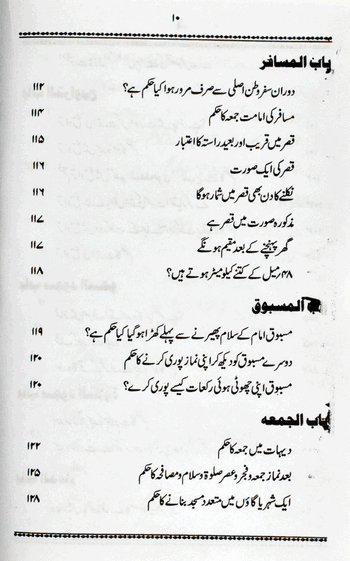 ۱۰
باب المسافر
دوران سفر وطن اصلی سے صرف مرور ہوا کیا حکم ہے؟ ۱۱۲
مسافر کی امامت جمعہ کا حکم ۱۱۴
قصر میں قریب اور بعید راستہ کا اعتبار ۱۱۵
قصر کی ایک صورت ۱۱۶
نکلنے کا دن بھی قصر میں شمار ہوگا ۱۱۶
مذکورہ صورت میں قصر ہے ۱۱۷
گھر پہنچنے کے بعد مقیم ہونگے ۱۱۷
۴۸ میل کے کتنے کیلومیٹر ہوتے ہیں؟ ۱۱۸
المسبوق
مسبوق امام کے سلام پھیرنے سے پہلے کھڑا ہو گیا کیا حکم ہے؟ ۱۱۹
دوسرے مسبوق کو دیکھ کر اپنی نماز پوری کرنے کا حکم ۱۲۰
مسبوق اپنی چھوٹی ہوئی رکعات کیسے پوری کرے؟ ۱۲۰
باب الجمعه
دیہات میں جمعہ کا حکم ۱۲۲
بعد نماز جمعہ و فجر و عصر صلوٰۃ و سلام و مصافحہ کا حکم ۱۲۵
ایک شہر یا گاؤں میں متعدد مسجد بنانے کا حکم ۱۲۸